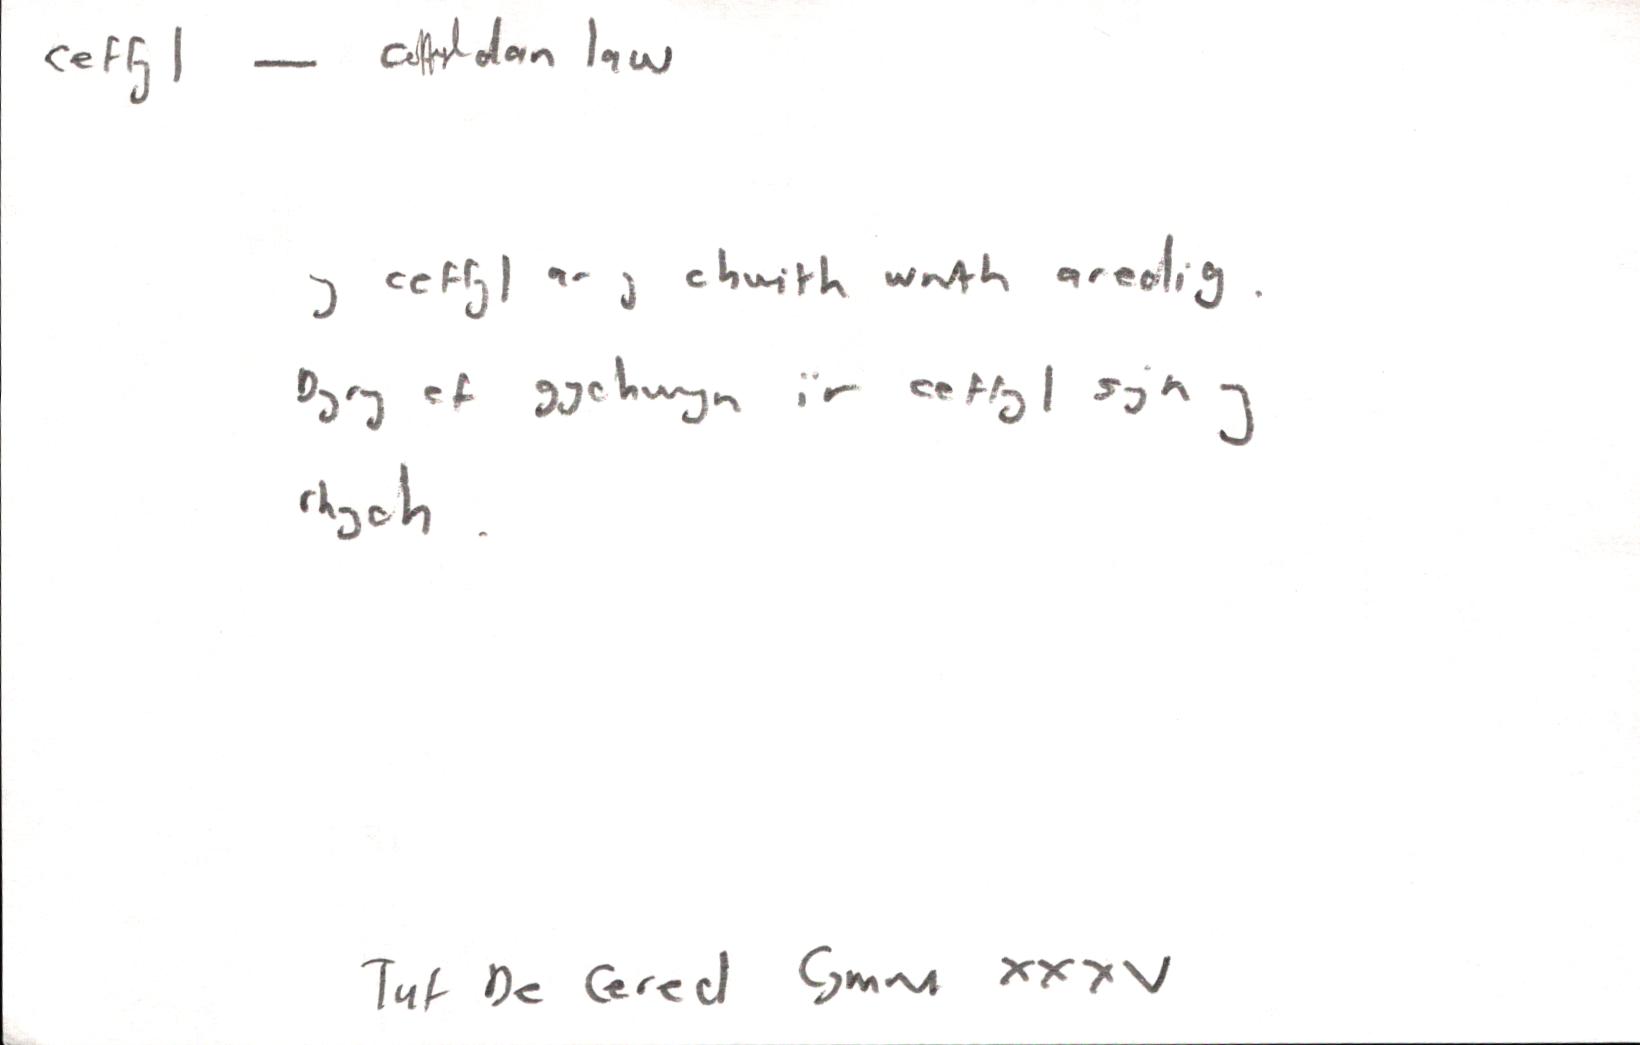 ceffyl — ceffyl dan law
y ceffyl ar y chwith wrth aredig.
Dyry ef gychwyn i'r ceffyl sy'n y
rhych.
Tuf De Cered Cymru XXXV